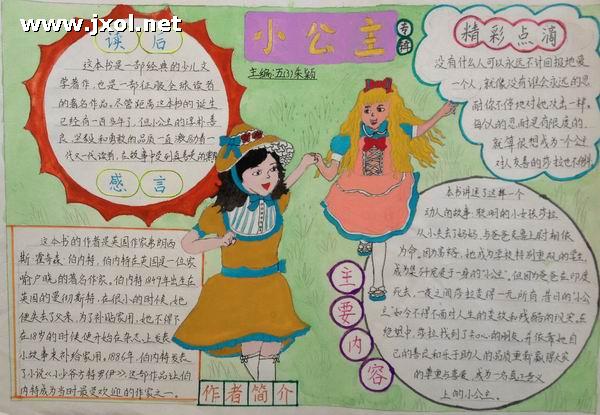 www.jxol.net
小公主
专辑
主编:五(3)朱颖
读后
这本书是一部经典的少儿文
学著作,也是一部征服全球读者
的著名作品。尽管距离这本书的诞生
已经有一百多年了,但小公主的淳朴善
良、坚毅和勇敢的品质一直激励着一
代又一代读者,在故事中受到真善美的熏陶
感言
精彩点滴
没有什么人可以永远不计回报地爱
一个人,就像没有谁会永远的忍
耐你不停地对她攻击一样,
每个的忍耐是有限度的,
就算很想成为一个公主
对人友善的莎拉也不例外
这本书的作者是英国作家弗朗西
斯·霍奇森·伯内特,伯内特在英国是一位家
喻户晓的著名作家。伯内特1849年出生在
英国的曼彻斯特,在很小的时候,她
便失去了父亲,为了补贴家用,她不得不
在18岁的时候便开始在杂志上发表
小故事来补给家用,1886年,伯内特发表
了小说《小少爷方特罗伊》这部作品让伯
内特成为当时最受欢迎的作家之一。
作者简介
本书讲述了这样一个
动人的故事,聪明的小女孩莎拉
从小失去了妈妈,与爸爸克鲁上尉相依
为命。因为富裕,她成为学校特别重视的学生,
成为集万千宠爱于一身的"小公主",但因为爸爸在印度
死去,一夜之间莎拉变得一无所有,昔日的"小公
主"如今不得不面对人生的变故和残酷的现实。在
绝望中,莎拉找到了知心的朋友,并依靠她自
己的善良和乐于助人的品质重新赢得大家
的尊重与喜爱,成为一名真正意义
上的小公主。
主要内容